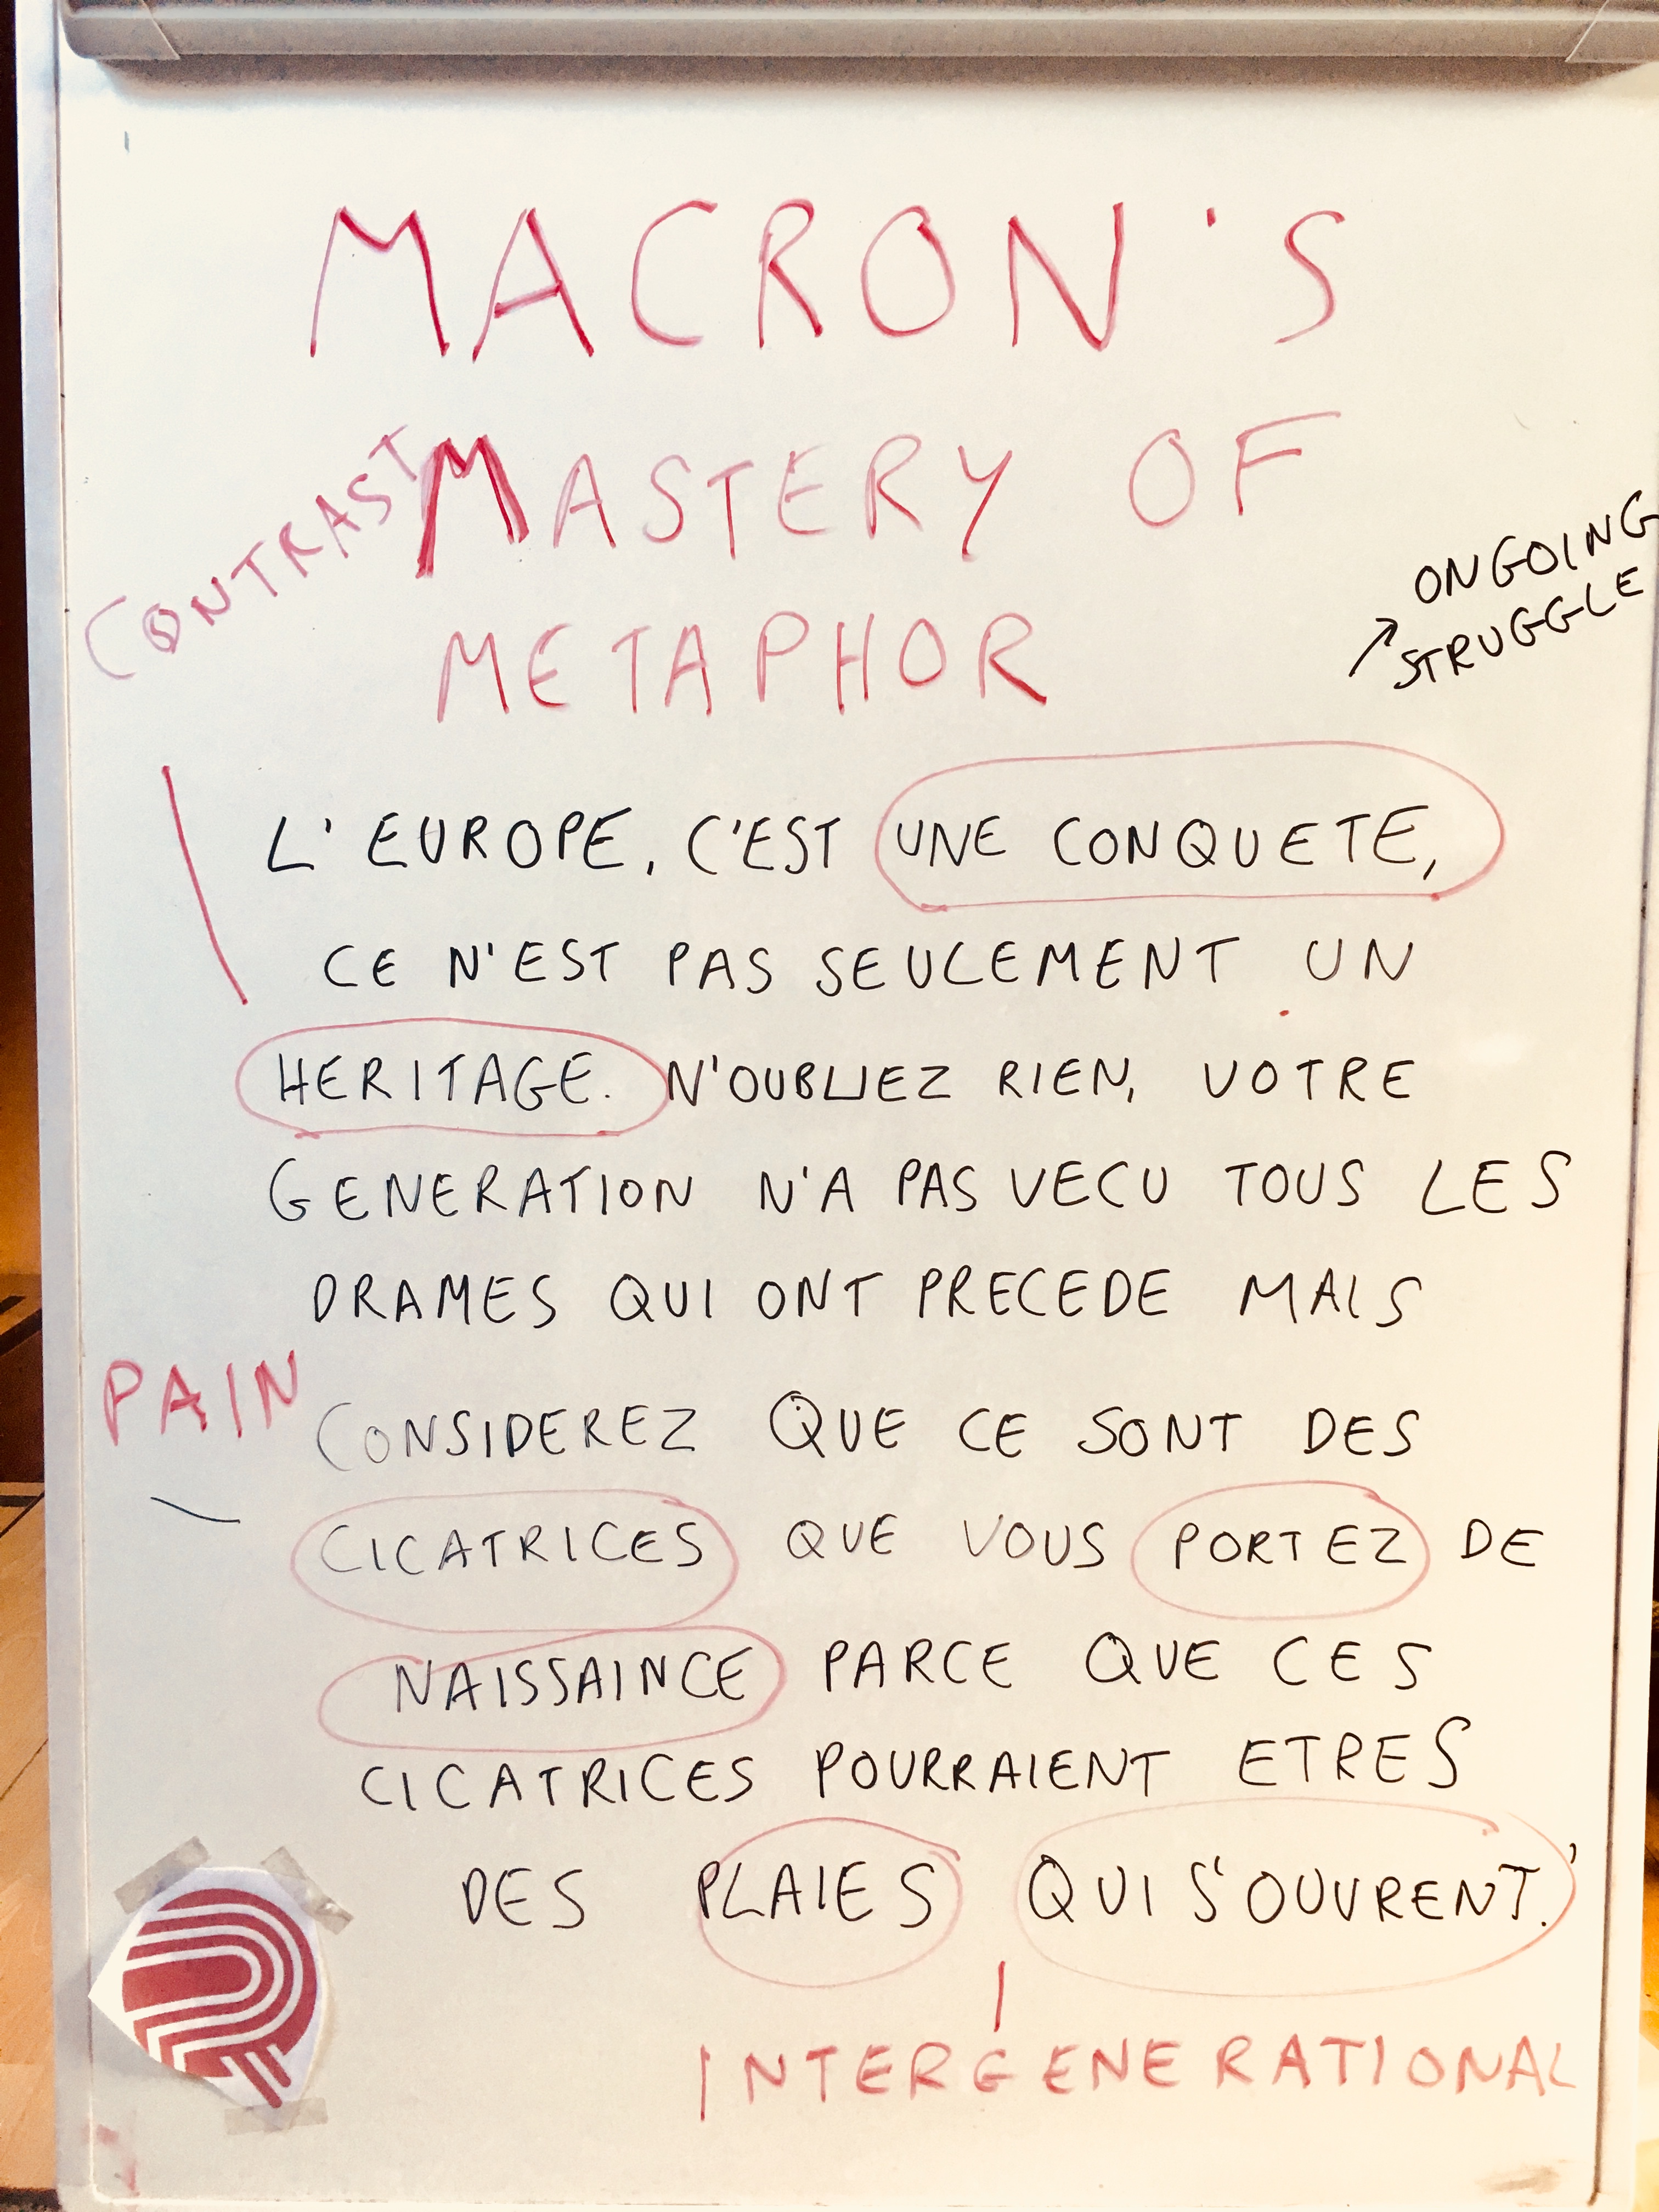 MACRON'S
MASTERY OF
CONTRAST
METAPHOR
ONGOING
STRUGGLE
L'EUROPE, C'EST UNE CONQUETE,
CE N'EST PAS SEULEMENT UN
HERITAGE. N'OUBLIEZ RIEN, VOTRE
GENERATION N'A PAS VECU TOUS LES
DRAMES QUI ONT PRECEDE MAIS
PAIN
CONSIDEREZ QUE CE SONT DES
CICATRICES QUE VOUS PORTEZ DE
NAISSAINCE PARCE QUE CES
CICATRICES POURRAIENT ETRES
DES PLAIES QUI S'OUVRENT.'
INTERGENERATIONAL